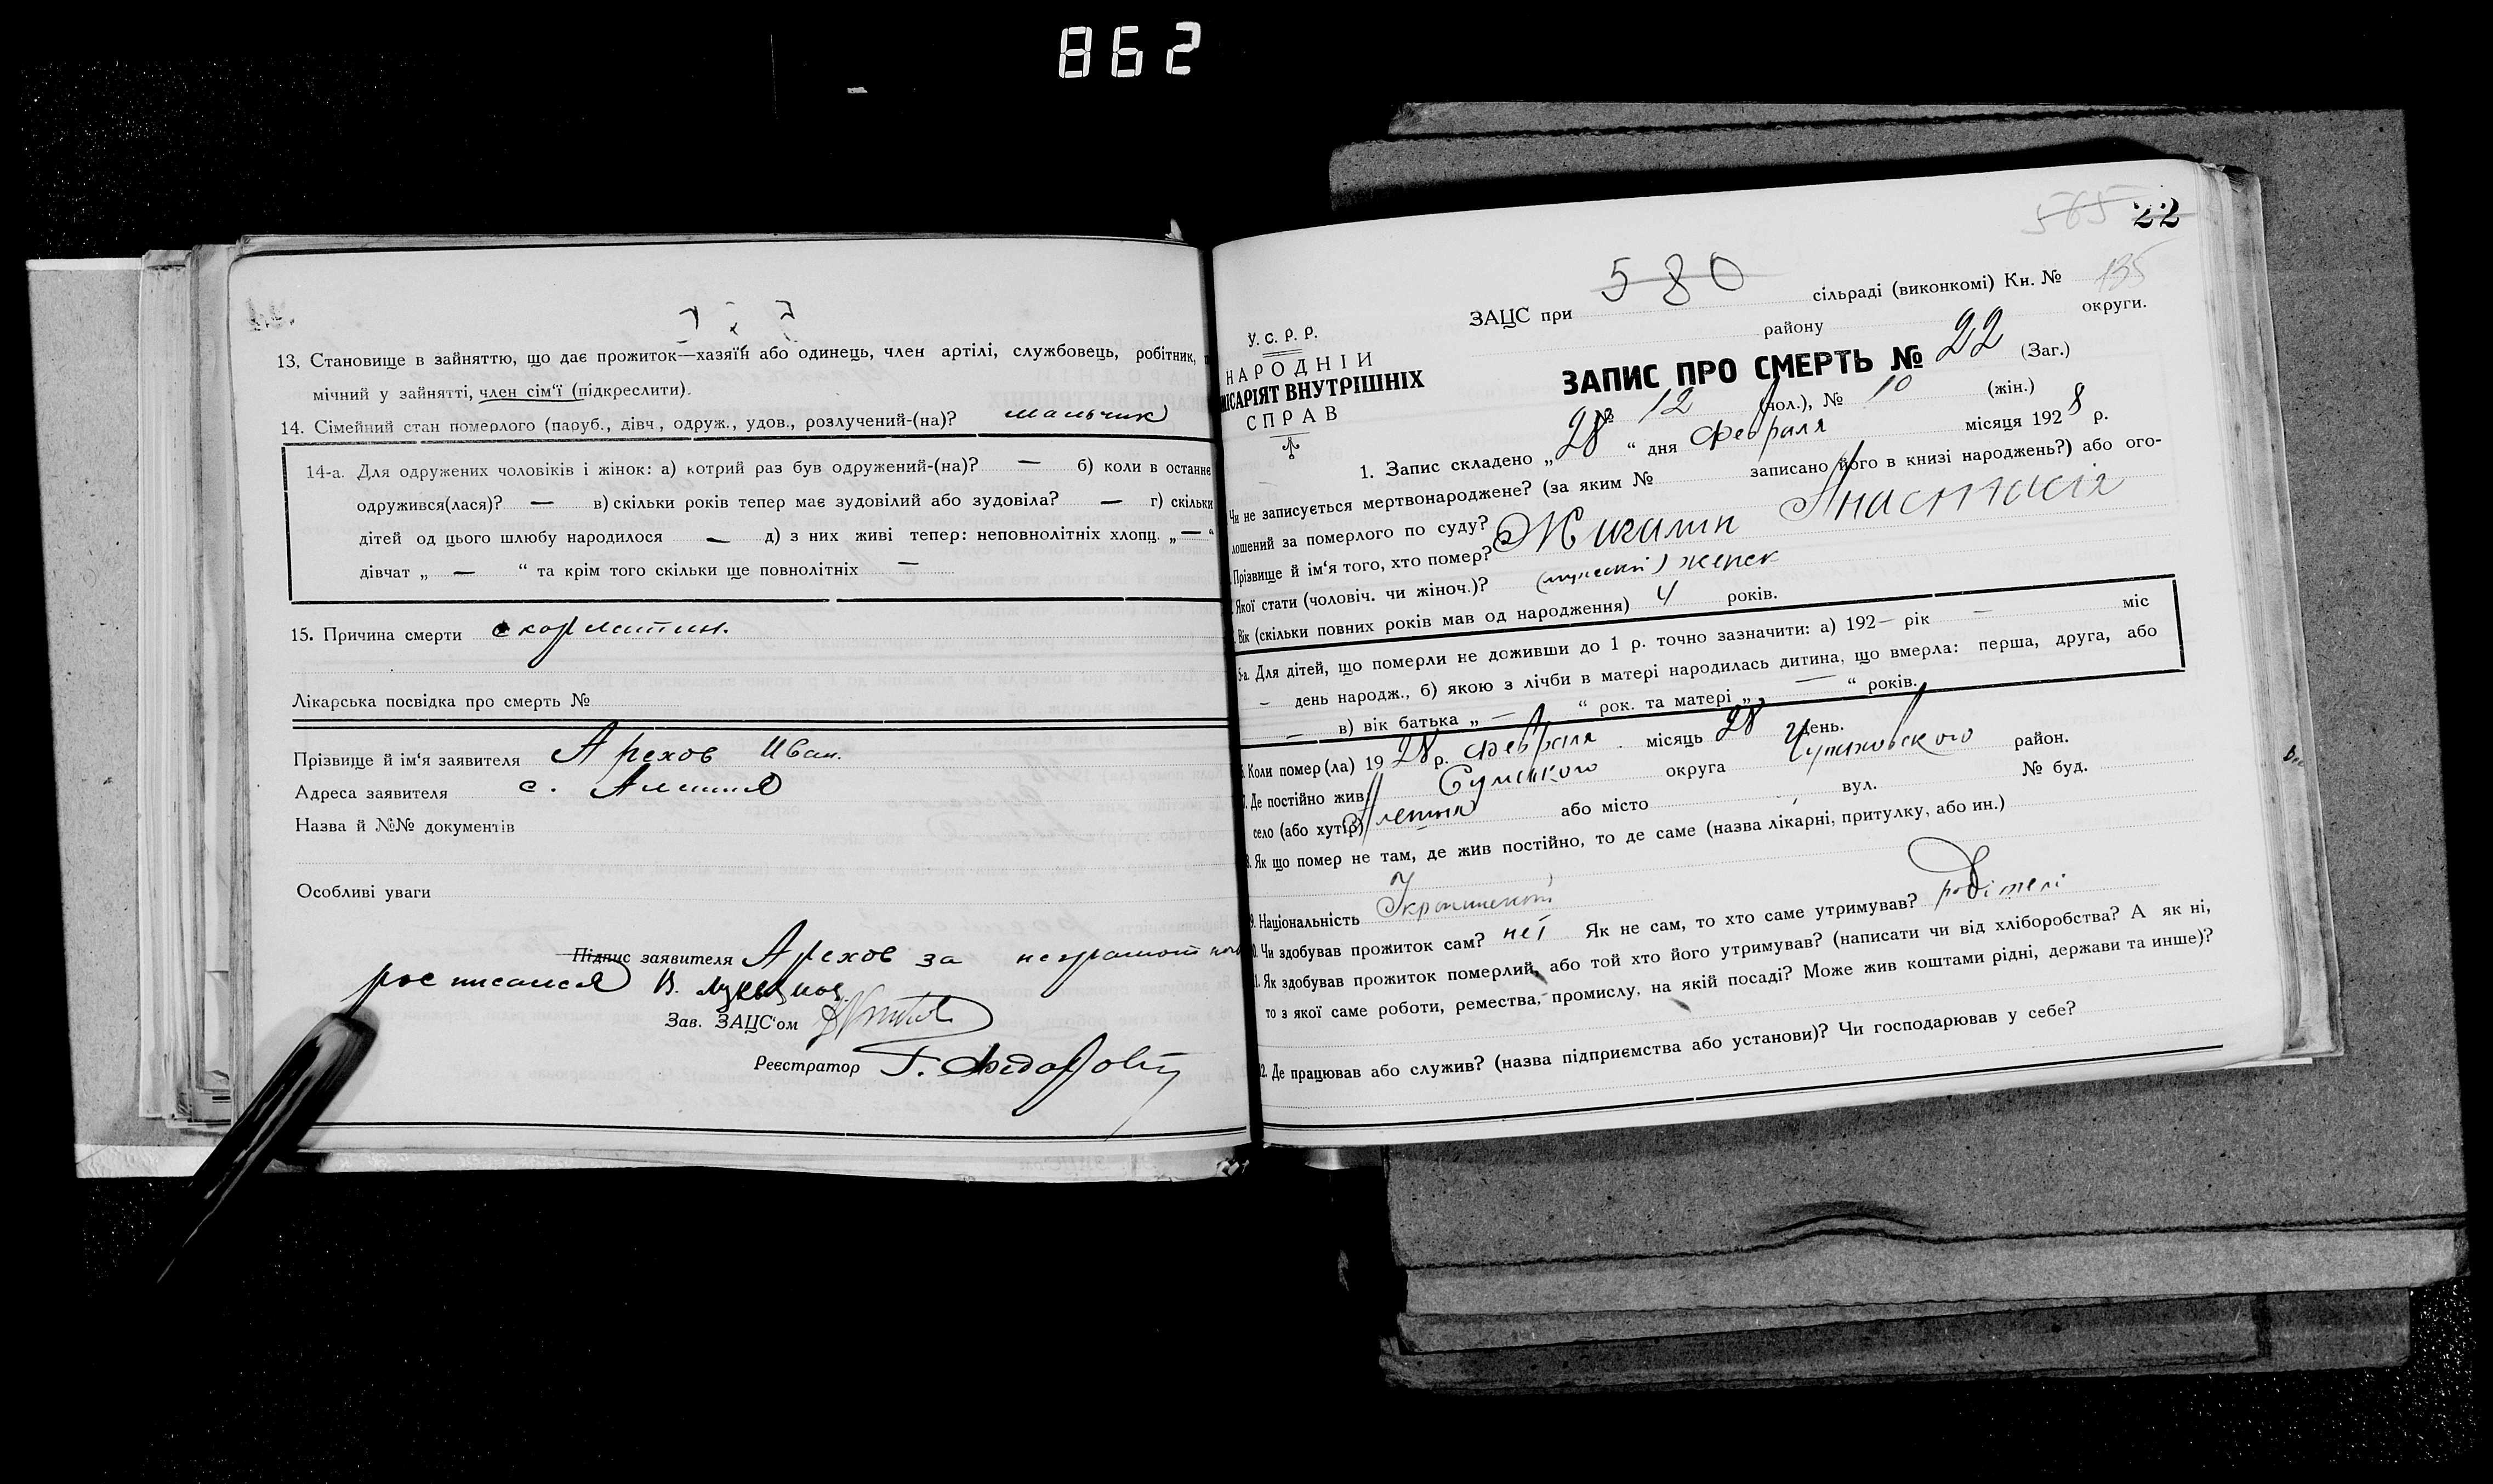 862
13. Становище в зайняттю, що дає прожиток—хазяїн або одинець, член артілі, службовець, робітник,
мічний у зайнятті, член сім'ї (підкреслити).
14. Сімейний стан померлого (паруб., дівч., одруж., удов., розлучений-(на)? мальчик
14-а. Для одружених чоловіків і жінок: а) котрий раз був одружений-(на)? — б) коли в останнє
одружився(лася)? — в) скільки років тепер має зудовілий або зудовіла? — г) скільки
дітей од цього шлюбу народилося — д) з них живі тепер: неповнолітніх хлопц. „—“
дівчат „ — “ та крім того скільки ще повнолітніх —
15. Причина смерти скорлатин.
Лікарська посвідка про смерть №
Прізвище й ім'я заявителя Арехов Иван.
Адреса заявителя с.
Назва й №№ документів
Особливі уваги
Підпис заявителя Арехов за неграмотн
росписался В.
Зав. ЗАЦС'ом
Реєстратор Г.
565 22
ЗАЦС при 580 сільраді (виконкомі) Кн. № 135
району округи.
У. С. Р. Р.
НАРОДНІЙ
ІСАРІЯТ ВНУТРІШНІХ
СПРАВ
ЗАПИС ПРО СМЕРТЬ № 22 (Заг.)
№ 12 (чол.), № 10 (жін.)
1. Запис складено „28“ дня Февраля місяця 1928 р.
Чи не записується мертвонароджене? (за яким № записано його в книзі народжень?) або ого-
лошений за померлого по суду?
Прізвище й ім'я того, хто помер? Жигалин Анастасія
Якої стати (чоловіч. чи жіноч.)? (мужской) женск
Вік (скільки повних років мав од народження) 4 років.
5-а. Для дітей, що померли не доживши до 1 р. точно зазначити: а) 192— рік — міс
— день народж., б) якою з лічби в матері народилась дитина, що вмерла: перша, друга, або
— в) вік батька „ — “ рок. та матері „ — “ років.
Коли помер(ла) 1928 р. Февраля місяць 28 день.
7. Де постійно жив Сумского округа район.
село (або хутір) або місто вул. № буд.
8. Як що помер не там, де жив постійно, то де саме (назва лікарні, притулку, або ин.)
9. Національність
Чи здобував прожиток сам? неі Як не сам, то хто саме утримував? родітелі
Як здобував прожиток померлий, або той хто його утримував? (написати чи від хліборобства? А як ні,
то з якої саме роботи, ремества, промислу, на якій посаді? Може жив коштами рідні, держави та инше)?
Де працював або служив? (назва підприємства або установи)? Чи господарював у себе?